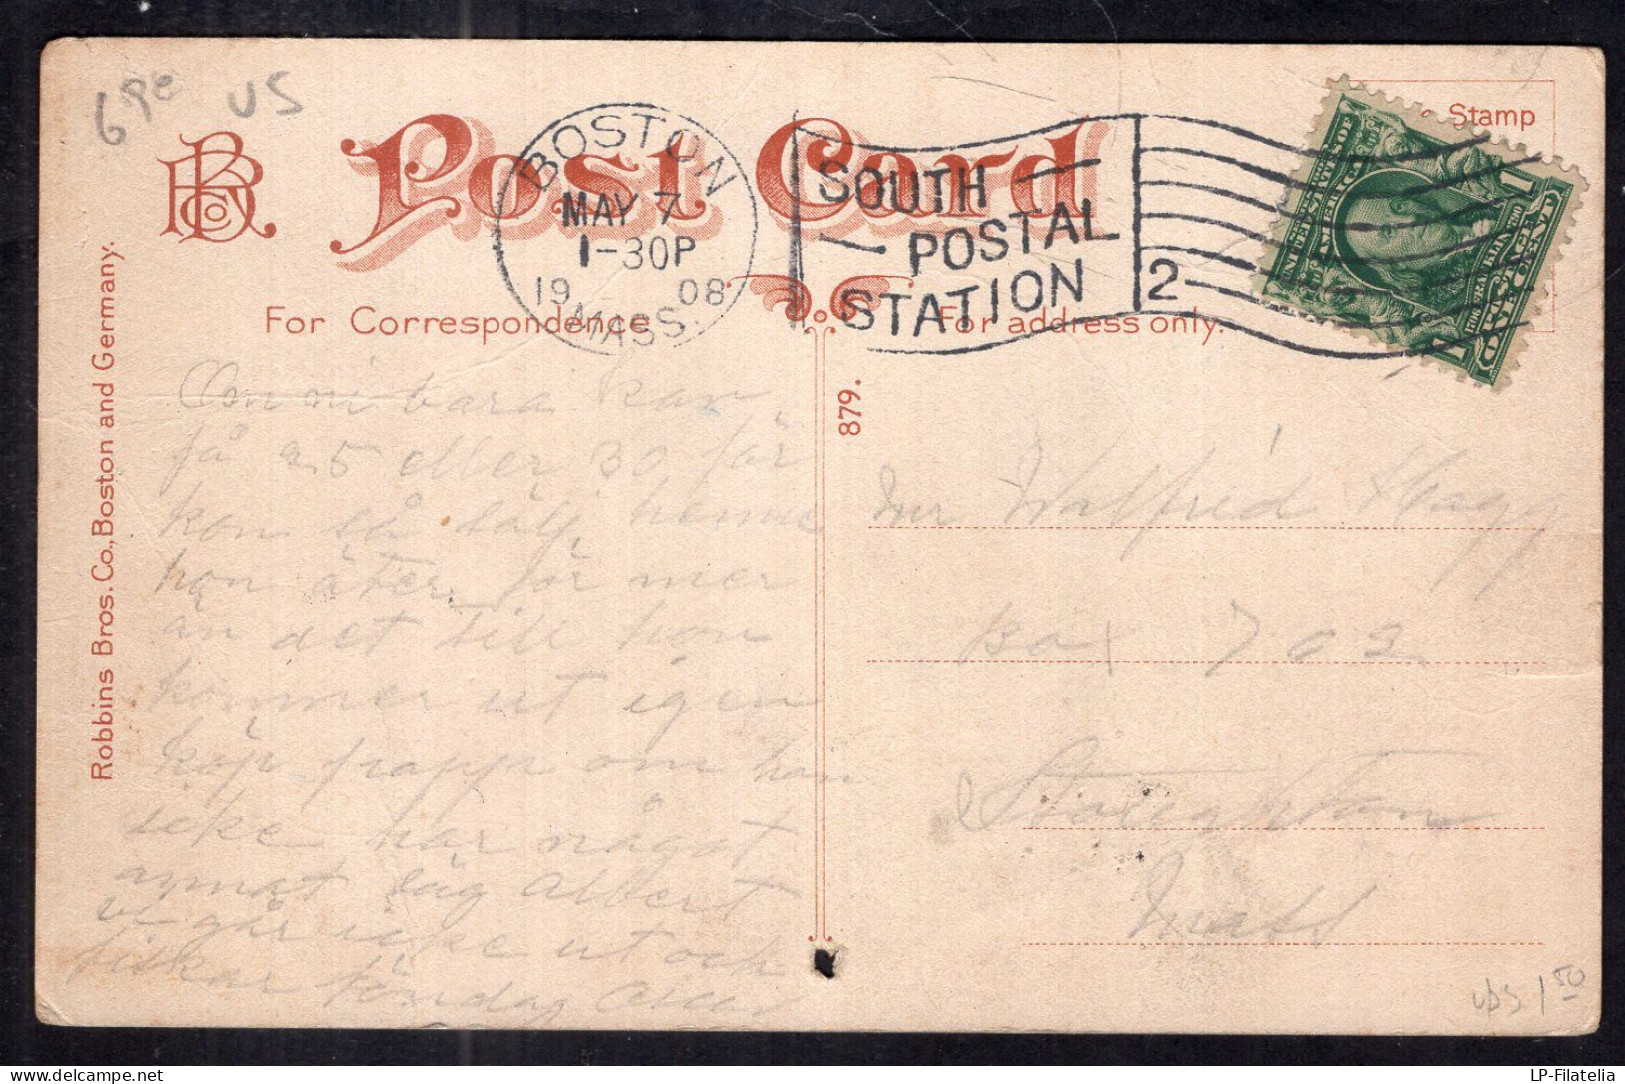 69e US
RBCo
Post Card
Stamp
BOSTON
MAY 7
1-30P
19 08
MASS.
SOUTH
POSTAL
STATION
2
UNITED STATES OF AMERICA
1 1
ONE CENT
For Correspondence
For address only.
Robbins Bros. Co., Boston and Germany.
879.
Om ni bara kan
få 25 eller 30 för
kon så sälj henne
hon äter för mer
än det till hon
kommer ut igen
köp pappa om han
icke har något
annat säg Albert
vi går icke ut och
fiskar söndag
Mr Walfrid Hagg
Box 703
Stoughton
Mass
US 1 50
LP-Filatelia